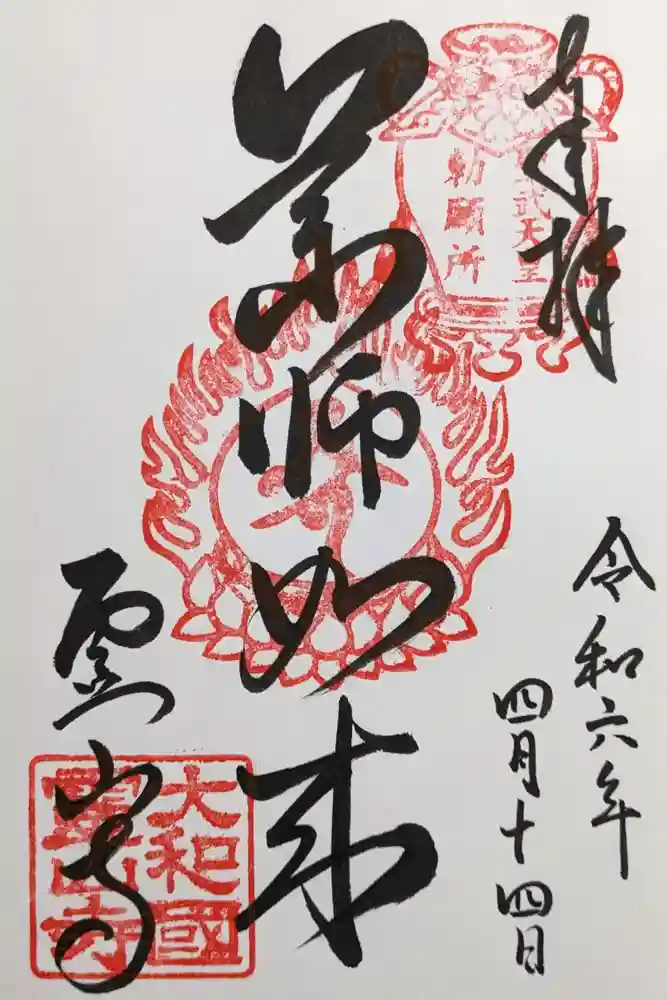 奉拝
聖武天皇
勅願所
令和六年
四月十四日
薬師如来
霊山寺
大和國
霊山寺